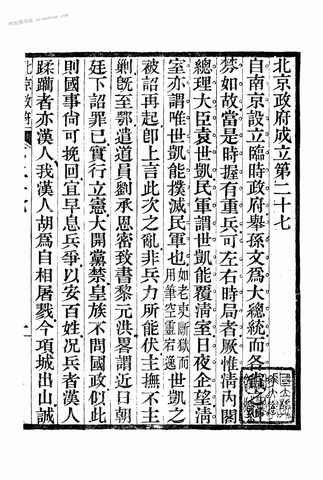 北京政府成立第二十七
自南京設立臨時政府舉孫文爲大總統而各省
棼如故當是時握有重兵可左右時局者厥惟淸內閣
總理大臣袁世凱民軍謂世凱能覆淸室日夜企望淸
室亦謂唯世凱能撲滅民軍也用筆空靈宕逸如老吏斷獄而世凱之
被詔再起卽上言此次之亂非兵力所能伏主撫不主
剿旣至鄂遣道員劉承恩密致書黎元洪畧謂近日朝
廷下詔罪已實行立憲大開黨禁皇族不問國政似此
則國事尙可挽回宜早息兵爭以安百姓况兵者漢人
蹂躪者亦漢人我漢人胡爲自相屠戮今項城出山誠
北京政府